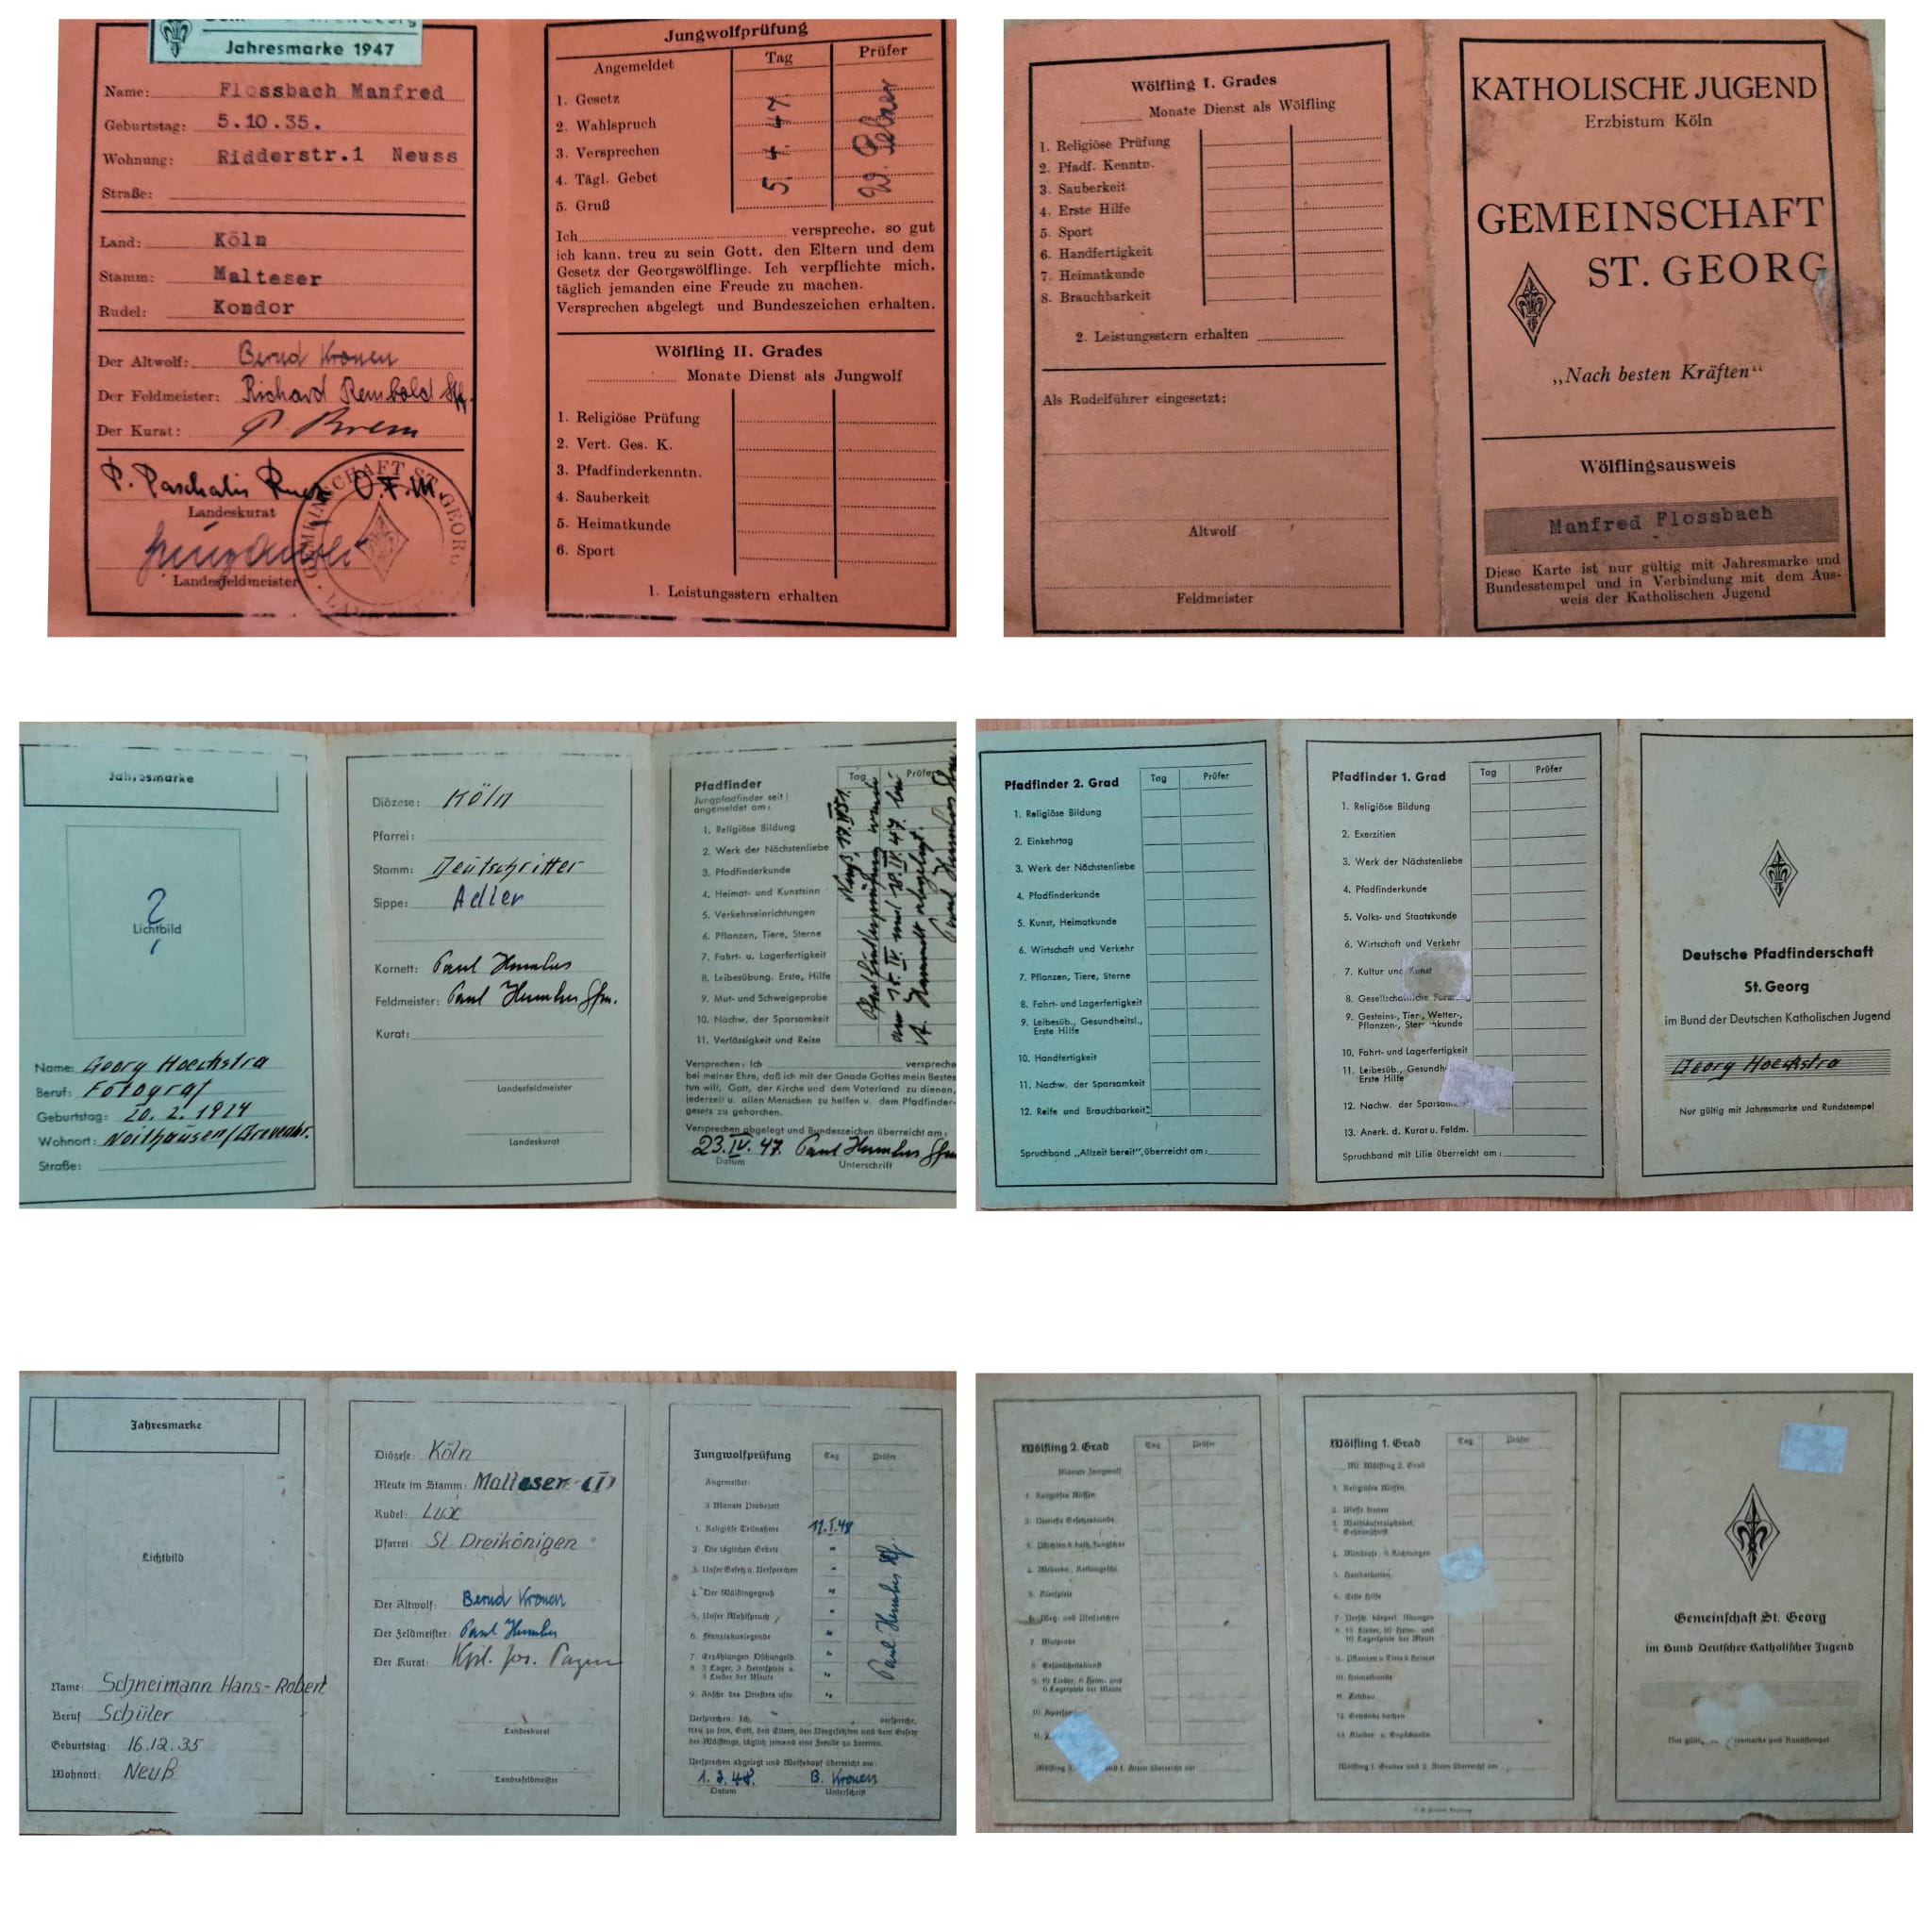 Jahresmarke 1947
Name: Flossbach Manfred
Geburtstag: 5.10.35.
Wohnung: Ridderstr.1 Neuss
Straße:
Land: Köln
Stamm: Malteser
Rudel: Kondor
Der Altwolf: Bernd Kronen
Der Feldmeister: Richard Rembold
Der Kurat:
P. Paschalis O.F.M.
Landeskurat
Landesfeldmeister
GEMEINSCHAFT ST. GEORG
Jungwolfprüfung
Angemeldet Tag Prüfer
1. Gesetz
2. Wahlspruch
3. Versprechen
4. Tägl. Gebet
5. Gruß
5. 4. 47
Ich verspreche, so gut
ich kann, treu zu sein Gott, den Eltern und dem
Gesetz der Georgswölflinge. Ich verpflichte mich,
täglich jemanden eine Freude zu machen.
Versprechen abgelegt und Bundeszeichen erhalten.
Wölfling II. Grades
Monate Dienst als Jungwolf
1. Religiöse Prüfung
2. Vert. Ges. K.
3. Pfadfinderkenntn.
4. Sauberkeit
5. Heimatkunde
6. Sport
1. Leistungsstern erhalten
Wölfling I. Grades
Monate Dienst als Wölfling
1. Religiöse Prüfung
2. Pfadf. Kenntn.
3. Sauberkeit
4. Erste Hilfe
5. Sport
6. Handfertigkeit
7. Heimatkunde
8. Brauchbarkeit
2. Leistungsstern erhalten
Als Rudelführer eingesetzt:
Altwolf
Feldmeister
KATHOLISCHE JUGEND
Erzbistum Köln
GEMEINSCHAFT
ST. GEORG
„Nach besten Kräften“
Wölflingsausweis
Manfred Flossbach
Diese Karte ist nur gültig mit Jahresmarke und
Bundesstempel und in Verbindung mit dem Aus-
weis der Katholischen Jugend
Jahresmarke
?
Lichtbild
Name: Georg Hoeckstra
Beruf: Fotograf
Geburtstag: 20. 2. 1924
Wohnort:
Straße:
Diözese: Köln
Pfarrei:
Stamm: Deutschritter
Sippe: Adler
Kornett: Paul Humbs
Feldmeister: Paul Humbs
Kurat:
Landesfeldmeister
Landeskurat
Pfadfinder Tag Prüfer
Jungpfadfinder seit:
angemeldet am:
1. Religiöse Bildung
2. Werk der Nächstenliebe
3. Pfadfinderkunde
4. Heimat- und Kunstsinn
5. Verkehrseinrichtungen
6. Pflanzen, Tiere, Sterne
7. Fahrt- u. Lagerfertigkeit
8. Leibesübung. Erste, Hilfe
9. Mut- und Schweigeprobe
10. Nachw. der Sparsamkeit
11. Verlässigkeit und Reise
Versprechen: Ich verspreche
bei meiner Ehre, daß ich mit der Gnade Gottes mein Bestes
tun will, Gott, der Kirche und dem Vaterland zu dienen,
jederzeit u. allen Menschen zu helfen u. dem Pfadfinder-
gesetz zu gehorchen.
Versprechen abgelegt und Bundeszeichen überreicht am:
23. IV. 47. Paul Humbs
Datum Unterschrift
Pfadfinder 2. Grad Tag Prüfer
1. Religiöse Bildung
2. Einkehrtag
3. Werk der Nächstenliebe
4. Pfadfinderkunde
5. Kunst, Heimatkunde
6. Wirtschaft und Verkehr
7. Pflanzen, Tiere, Sterne
8. Fahrt- und Lagerfertigkeit
9. Leibesüb., Gesundheitsl.,
Erste Hilfe
10. Handfertigkeit
11. Nachw. der Sparsamkeit
12. Reife und Brauchbarkeit
Spruchband „Allzeit bereit“, überreicht am:
Pfadfinder 1. Grad Tag Prüfer
1. Religiöse Bildung
2. Exerzitien
3. Werk der Nächstenliebe
4. Pfadfinderkunde
5. Volks- und Staatskunde
6. Wirtschaft und Verkehr
7. Kultur und Kunst
8.
9. Gesteins-, Tier-, Wetter-,
Pflanzen-,
10. Fahrt- und Lagerfertigkeit
11. Leibesüb.,
Erste Hilfe
12. Nachw. der
13. Anerk. d. Kurat u. Feldm.
Spruchband mit Lilie überreicht am:
Deutsche Pfadfinderschaft
St. Georg
im Bund der Deutschen Katholischen Jugend
Georg Hoeckstra
Nur gültig mit Jahresmarke und Rundstempel
Jahresmarke
Lichtbild
Name: Schneimann Hans-Robert
Beruf Schüler
Geburtstag: 16.12.35
Wohnort: Neuß
Diözese: Köln
Meute im Stamm: Malteser (I)
Rudel: Lux
Pfarrei: St Dreikönigen
Der Altwolf: Bernd Kronen
Der Feldmeister: Paul Humbs
Der Kurat: Kpl. Jos.
Landeskurat
Landesfeldmeister
Jungwolfprüfung Tag Prüfer
Angemeldet:
3 Monate Probezeit
1. Religiöse Teilnahme
2. Die täglichen Gebete
3. Unser Gesetz u. Versprechen
4. Der Wölflingsgruß
5. Unser Wahlspruch
6. Franziskuslegende
7. Erzählungen Dschungelb.
8. 3 Lager, 3 Heimspiele u.
3 Lieder der Meute
9. Anschr. des Priesters usw.
Versprechen: Ich, verspreche,
treu zu sein, Gott, den Eltern, den Vorgesetzten und dem Gesetz
der Wölflinge, täglich jemand eine Freude zu bereiten.
Versprechen abgelegt und Wolfskopf überreicht am
1. 3. 48. B. Kronen
Datum Unterschrift
Wölfling 2. Grad Tag Prüfer
Monate Jungwolf
1. Religiöses Wissen
7. Mutprobe
Wölfling 1. Grad Tag Prüfer
1. Religiöses Wissen
2. Messe dienen
5. Handarbeiten
6. Erste Hilfe
10. Heimatkunde
12. Getränke kochen
Wölfling 1. Grades und 2. Stern überreicht am
Gemeinschaft St. Georg
im Bund Deutscher Katholischer Jugend